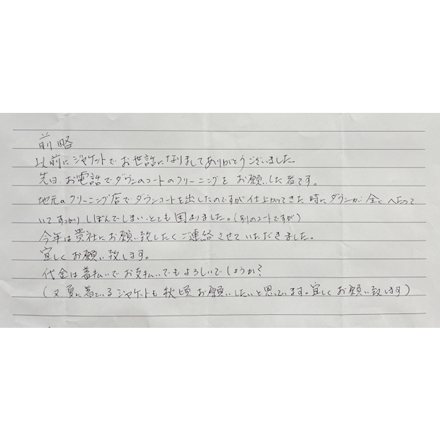 前略
以前にジャケットでお世話になりましてありがとうございました。
先日お電話でダウンのコートのクリーニングをお願いした者です。
地元のクリーニング店でダウンコートを出したのですが仕上がってきた時にダウンが全くへたって
いてすっかりしぼんでしまいとても困りました。(別のコートですが)
今年は貴社にお願い致したくご連絡させていただきました。
宜しくお願い致します。
代金は着払いでお支払いでもよろしいでしょうか?
(又夏に着ているジャケットも秋頃お願いしたいと思っています。宜しくお願い致します)